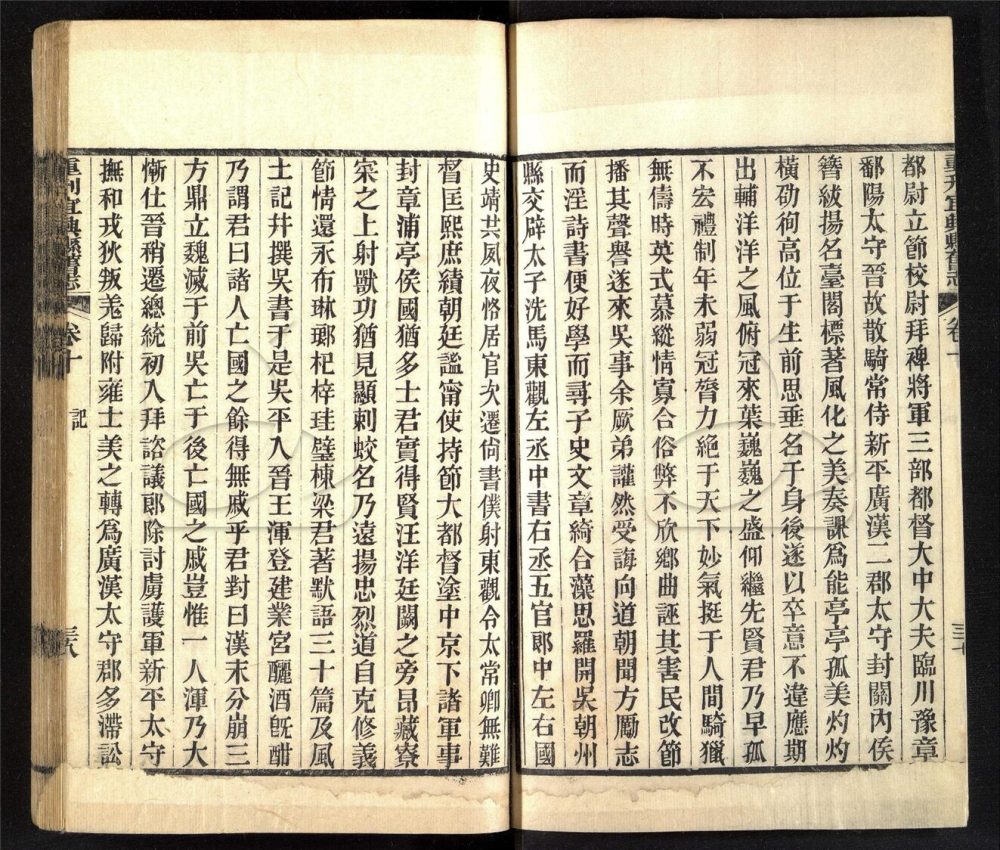 都尉立節校尉拜裨將軍三部都督大中大夫臨川豫章
鄱陽太守晉故散騎常侍新平廣漢二郡太守封關內侯
簪紱揚名臺閣標著風化之美奏課爲能亭亭孤美灼灼
橫劭徇高位于生前思垂名于身後遂以卒意不違應期
出輔洋洋之風俯冠來葉巍巍之盛仰繼先賢君乃早孤
不宏禮制年未弱冠膂力絶于天下妙氣挺于人間騎獵
無儔時英式慕縱情寡合俗弊不欣鄉曲誣其害民改節
播其聲譽遂來吳事余厥弟讙然受誨向道朝聞方厲志
而淫詩書便好學而尋子史文章綺合藻思羅開吳朝州
縣交辟太子洗馬東觀左丞中書右丞五官郎中左右國
史靖共夙夜恪居官次遷尙書僕射東觀令太常卿無難
督匡熙庶績朝廷諡甯使持節大都督塗中京下諸軍事
封章浦亭侯國猶多士君實得賢汪洋廷闕之旁昂藏寮
寀之上射獸功猶見顯刺蛟名乃遠揚忠烈道自克修義
節情還永布琳瑯杞梓珪璧棟梁君著默語三十篇及風
土記幷撰吳書于是吳平入晉王渾登建業宮釃酒旣酣
乃謂君曰諸人亡國之餘得無慼乎君對曰漢末分崩三
方鼎立魏滅于前吳亡于後亡國之戚豈惟一人渾乃大
慚仕晉稍遷總統初入拜諮議郎除討虜護軍新平太守
撫和戎狄叛羌歸附雍士美之轉爲廣漢太守郡多滯訟
重刊宜興縣舊志 卷十 記 三十八